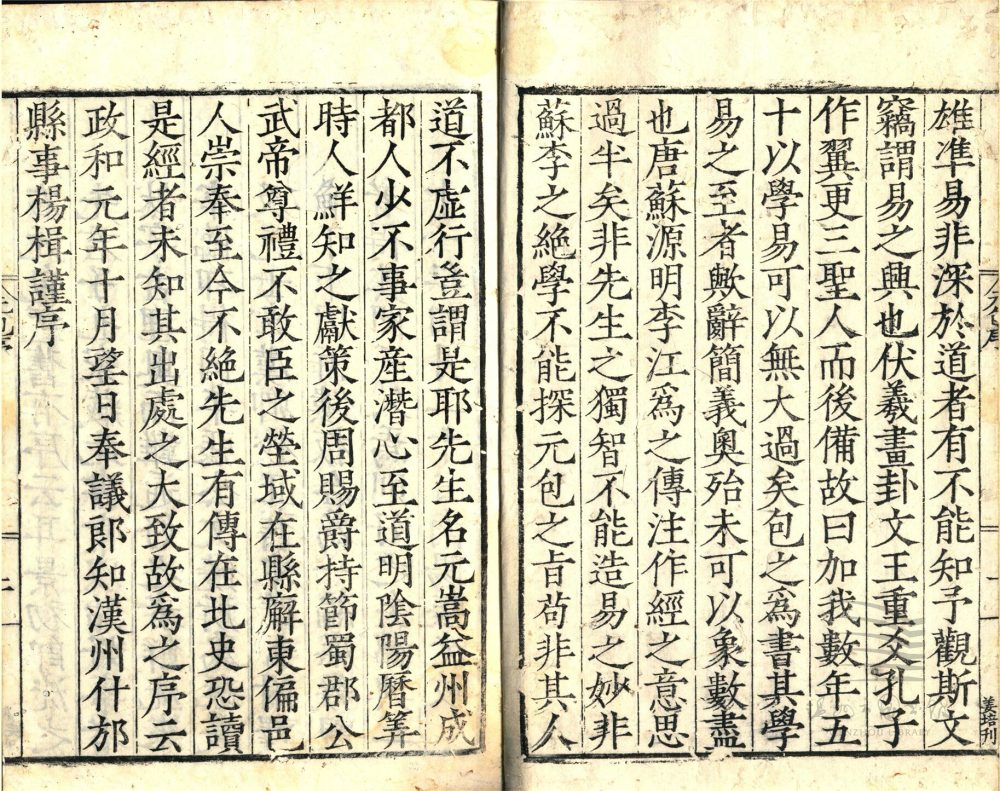 雄準易非深於道者有不能知予觀斯文
竊謂易之興也伏羲畫卦文王重爻孔子
作翼更三聖人而後備故曰加我數年五
十以學易可以無大過矣包之為書其學
易之至者歟辭簡義奧殆未可以象數盡
也唐蘇源明李江為之傳注作經之意思
過半矣非先生之獨智不能造易之妙非
蘇李之絕學不能探元包之旨苟非其人
姜培刊
道不虛行豈謂是耶先生名元嵩益州成
都人少不事家産潛心至道明陰陽曆筭
時人鮮知之獻策後周賜爵持節蜀郡公
武帝尊禮不敢臣之塋域在縣廨東偏邑
人崇奉至今不絶先生有傳在北史恐讀
是經者未知其出處之大致故為之序云
政和元年十月望日奉議郎知漢州什邡
縣事楊楫謹序